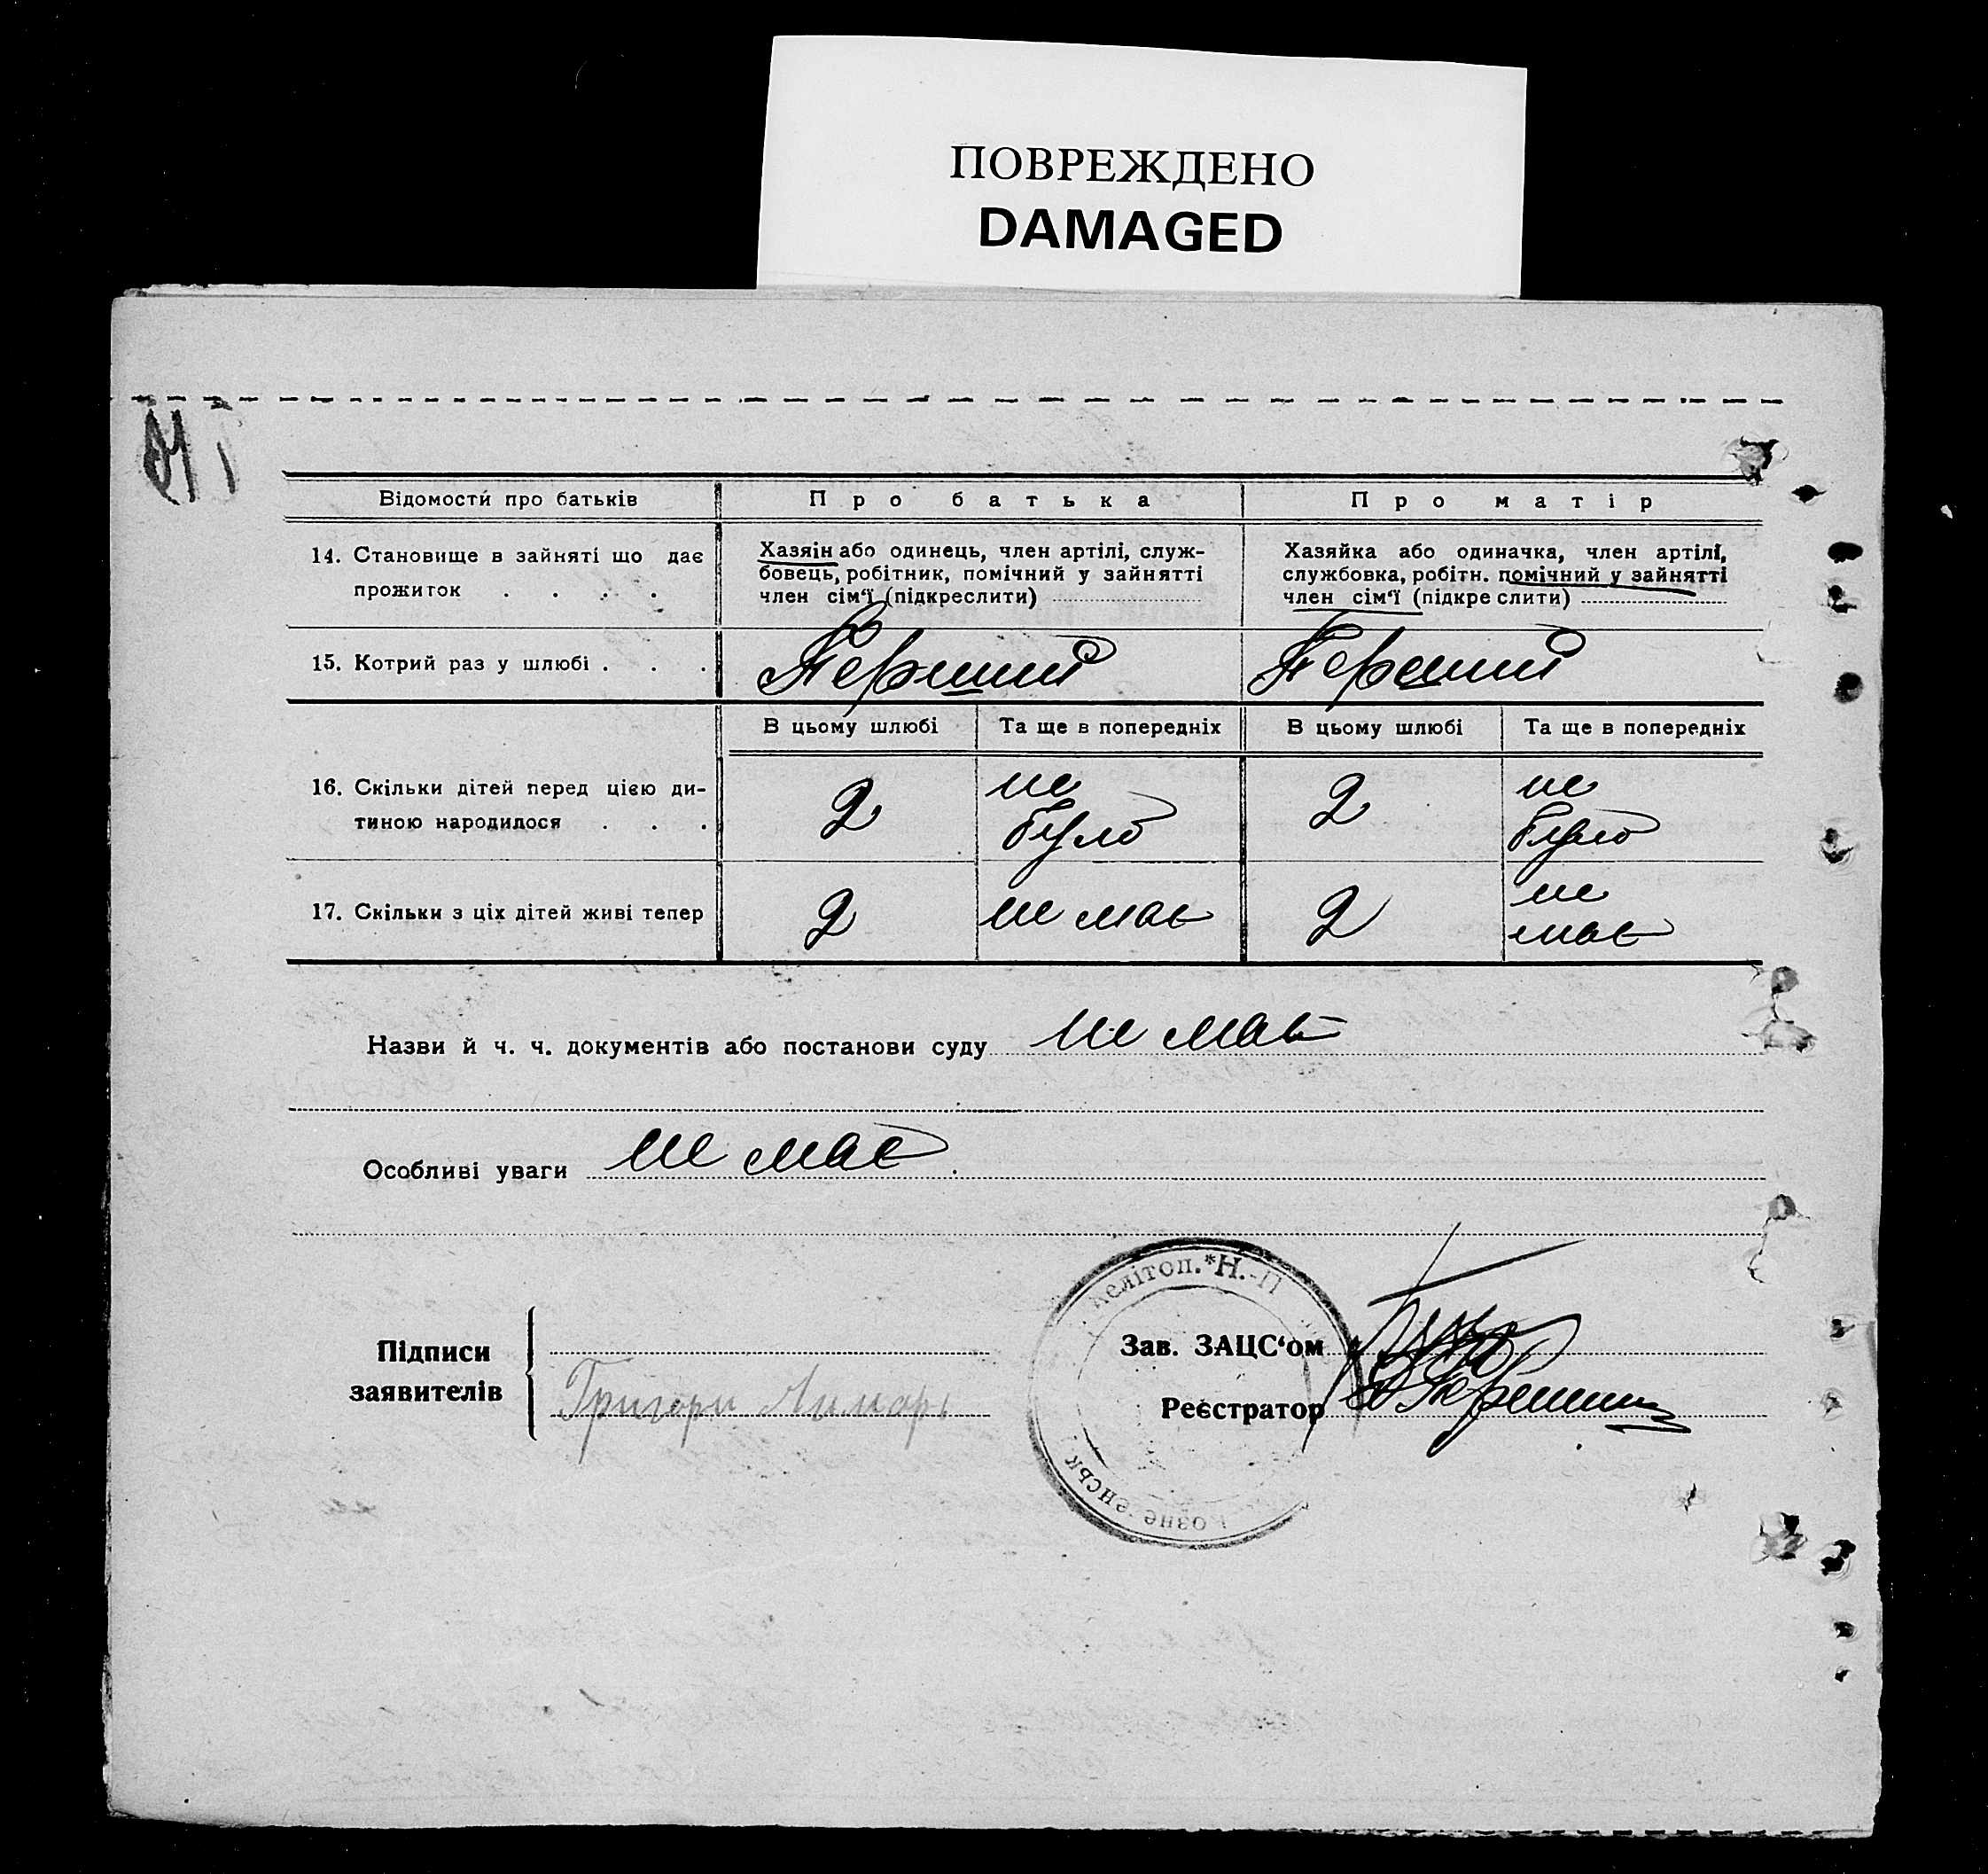 ПОВРЕЖДЕНО
DAMAGED
Відомости про батьків
Про батька
Про матір
14. Становище в зайняті що дає
прожиток . . . .
Хазяін або одинець, член артілі, служ-
бовець, робітник, помічний у зайнятті
член сім‘ї (підкреслити)
Хазяйка або одиначка, член артілі,
службовка, робітн. помічний у зайнятті
член сім‘ї (підкреслити)
15. Котрий раз у шлюбі . . .
Перший
Перший
В цьому шлюбі
Та ще в попередніх
В цьому шлюбі
Та ще в попередніх
16. Скільки дітей перед цією ди-
тиною народилося . . .
2
не
було
2
не
було
17. Скільки з ціх дітей живі тепер
2
не має
2
не
має
Назви й ч. ч. документів або постанови суду не має
Особливі уваги не має.
Підписи
заявителів
Григори Лимарь
Зав. ЗАЦС‘ом
Реєстратор
елітоп.*Н.-П